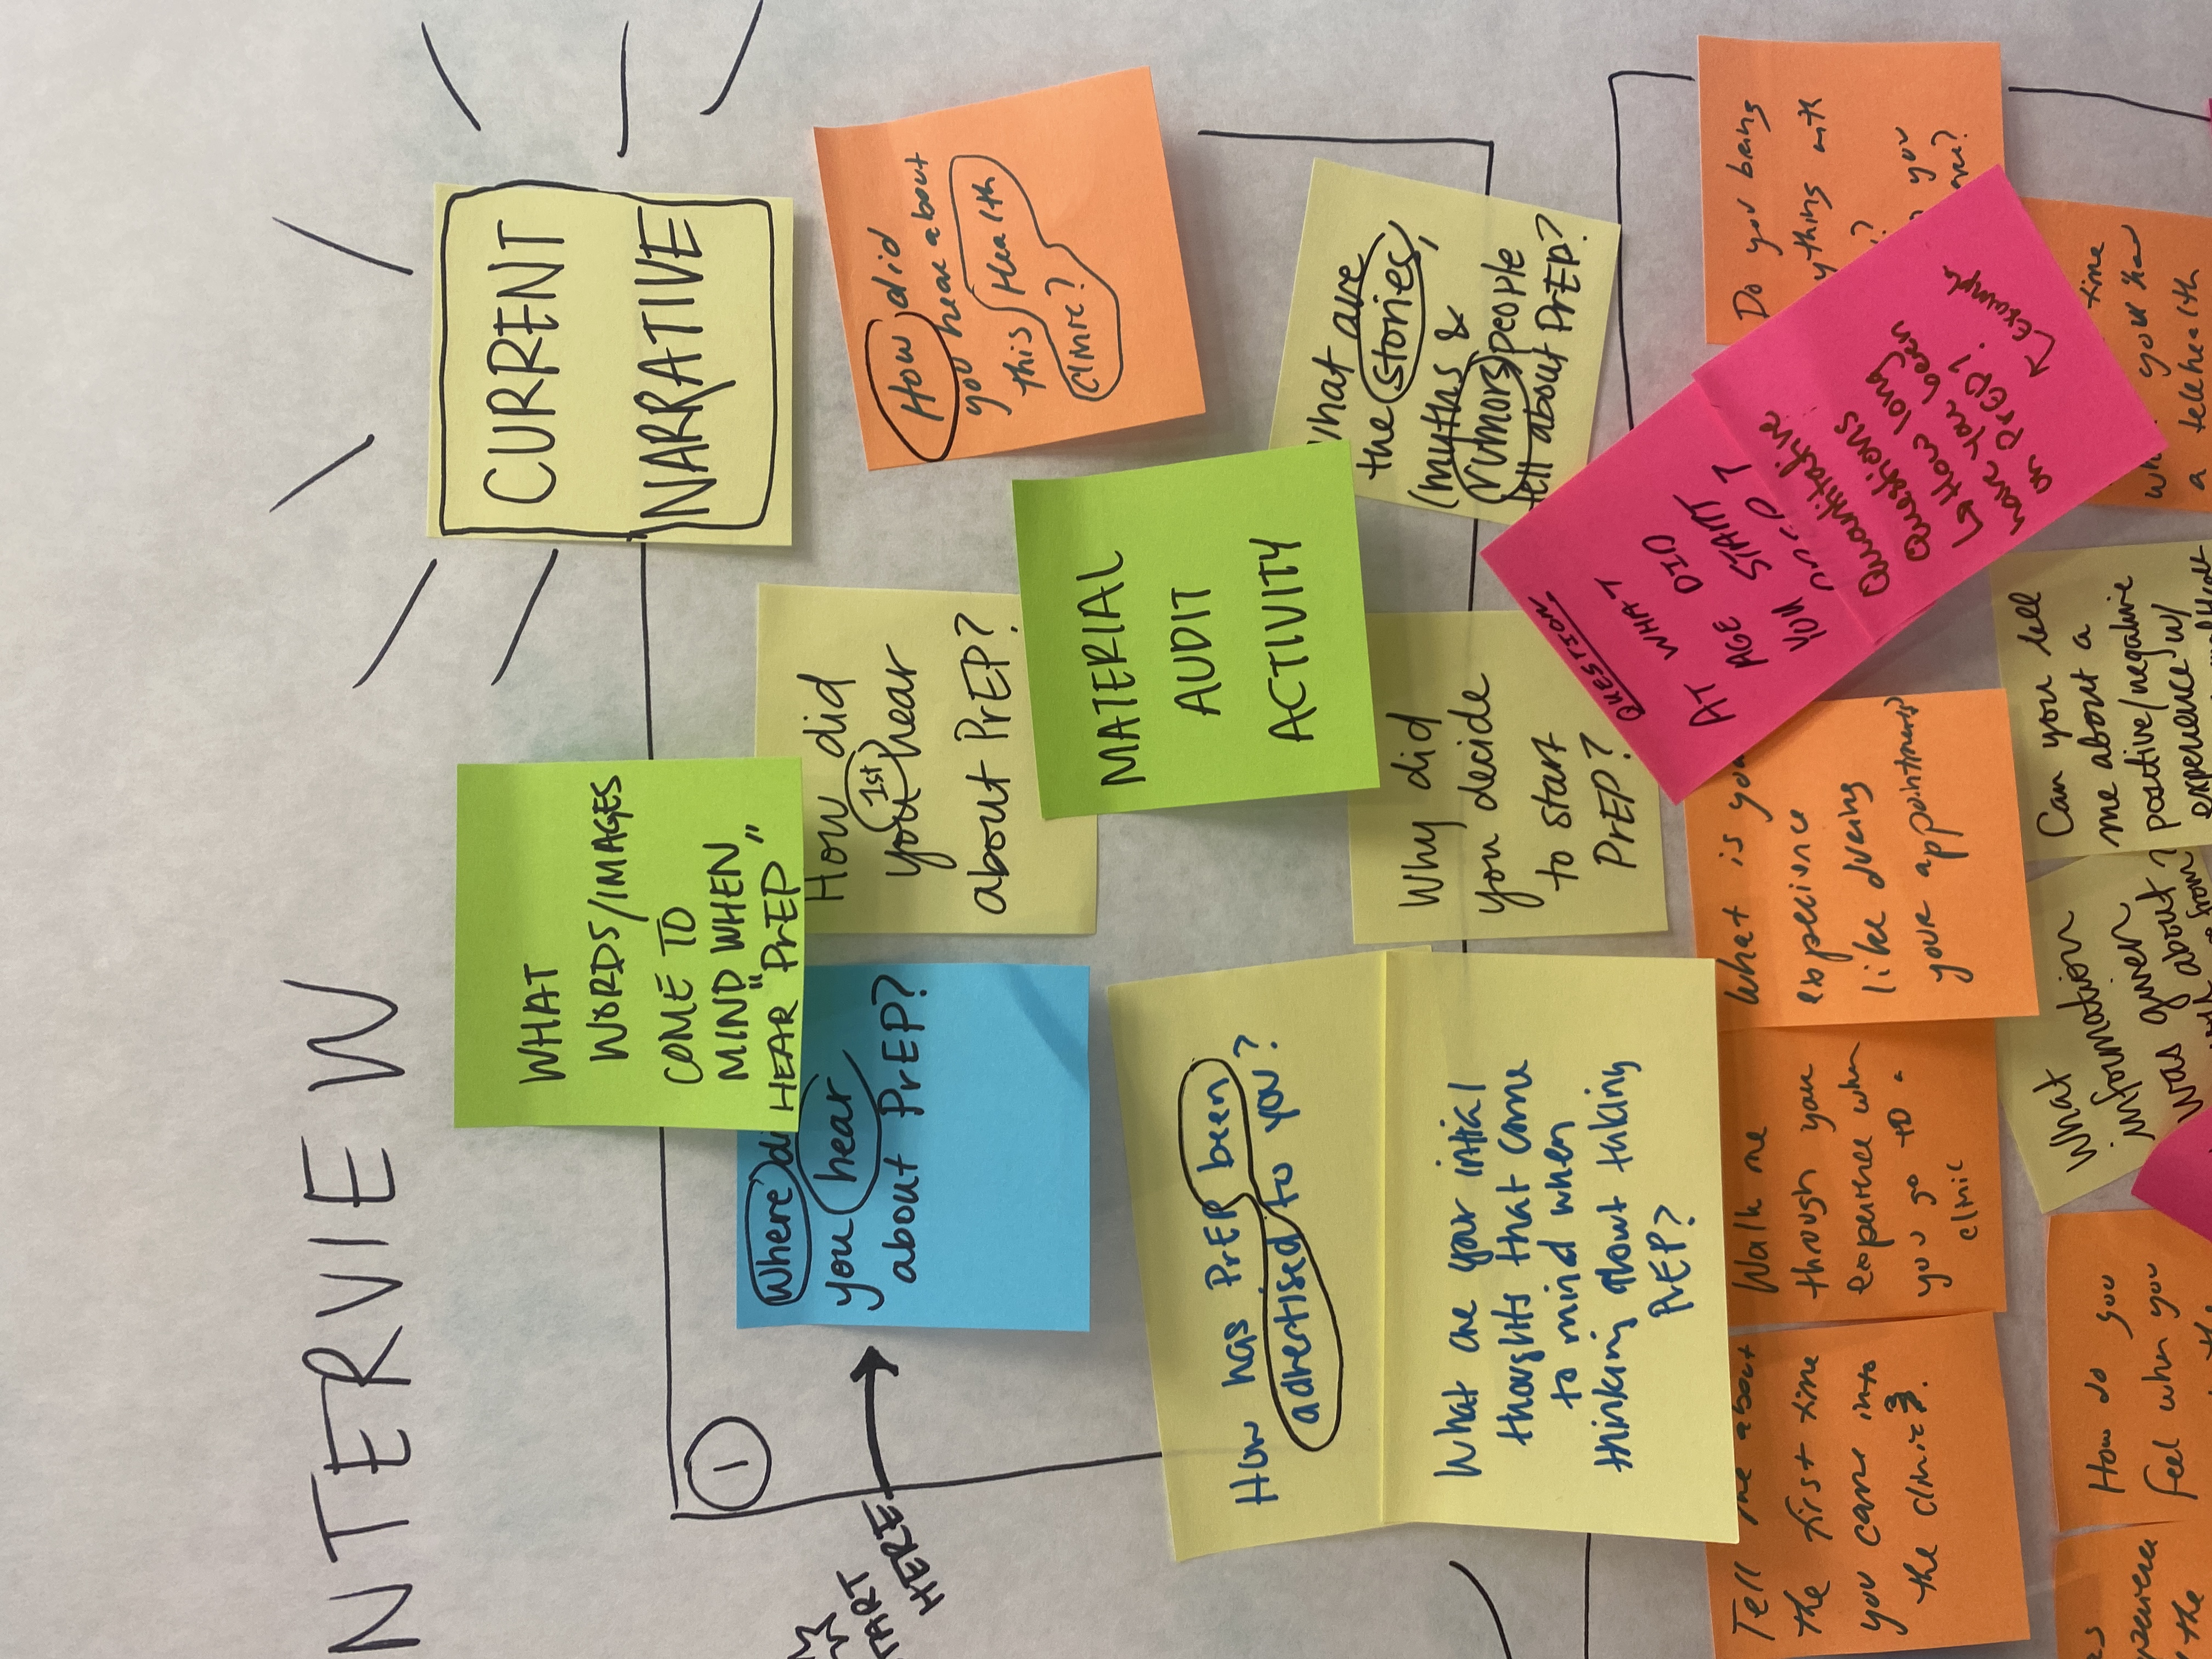 NTERVIEW
CURRENT
NARRATIVE
WHAT
WORDS/IMAGES
COME TO
MIND WHEN
HEAR "PrEP"
1
START
HERE
Where di
you hear
about PrEP?
How did
you 1st hear
about PrEP?
How did
you hear about
this Health
Clinic?
MATERIAL
AUDIT
ACTIVITY
what are
the stories,
(myths &
rumors) people
tell about PrEP?
How has PrEP been
advertised to you?
What are your initial
thoughts that come
to mind when
thinking about taking
PrEP?
Why did
you decide
to start
PrEP?
QUESTION
AT WHAT
AGE DID
YOU START
Quantitative
Questions
↳ How long
have you been
on PrEP?
Example
Do you bring
ything with
?
you
Tell me about
the first time
you came into
the clinic?.
Walk me
through your
experience when
you go to a
clinic
What is you
experience
like during
your appointment?
time
you ha
a telehealth
What
information
was given
was about
Can you tell
me about a
positive/negative
experience w/
How do you
feel when you
the